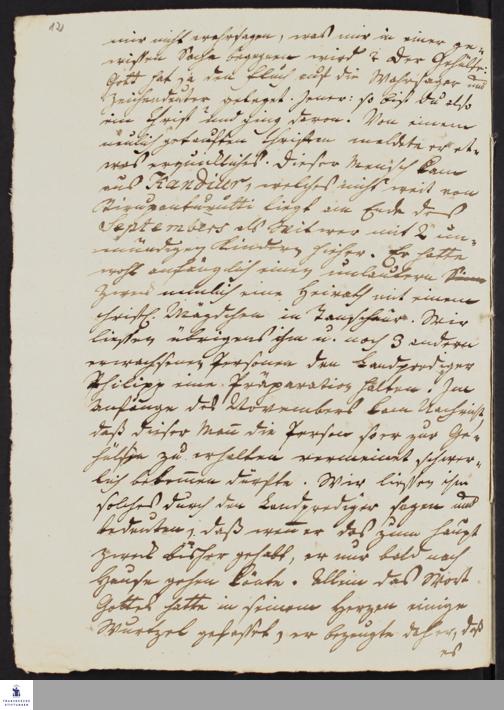 121
mir nicht wahrsagen, was mir in einer ge-
wissen Sache begegnen wird? Der Gehülfe:
Gott hat ja den Fluch auf die Wahrsager und
Zeichendeuter geleget. Jener: so bist du also
ein Christ und ging davon. Von einem
neulich getauften Christen meldete er et-
was erquickliches. Dieser Mensch kam
aus Kandiur, welches nicht weit von
liegt am Ende des
Septembers als Witwer mit 2 un-
mündigen Kindern hieher. Er hatte
wohl anfänglich einen unlautern
Zweck nemlich eine Heirath mit einem
christl. Mägdchen in Tanschaur. Wir
liessen übrigens ihm u. noch 3 andern
erwachsenen Personen den Landprediger
Philipp eine Präparation halten. Im
Anfange des Novembers kam Nachricht,
daß dieser Mann die Person so er zur Ge-
hülfin zu erhalten vermeinet schwer-
lich bekommen dürfte. Wir liessen ihm
solches durch den Landprediger sagen und
bedeuten, daß wenn er das zum Haupt
zweck bisher gehabt, er nur bald nach
Hause gehen könte. Allein das Wort
Gottes hatte in seinem Herzen einige
Wurtzel gefasset, er bezeugte daher, daß
es
FRANCKESCHE
STIFTUNGEN